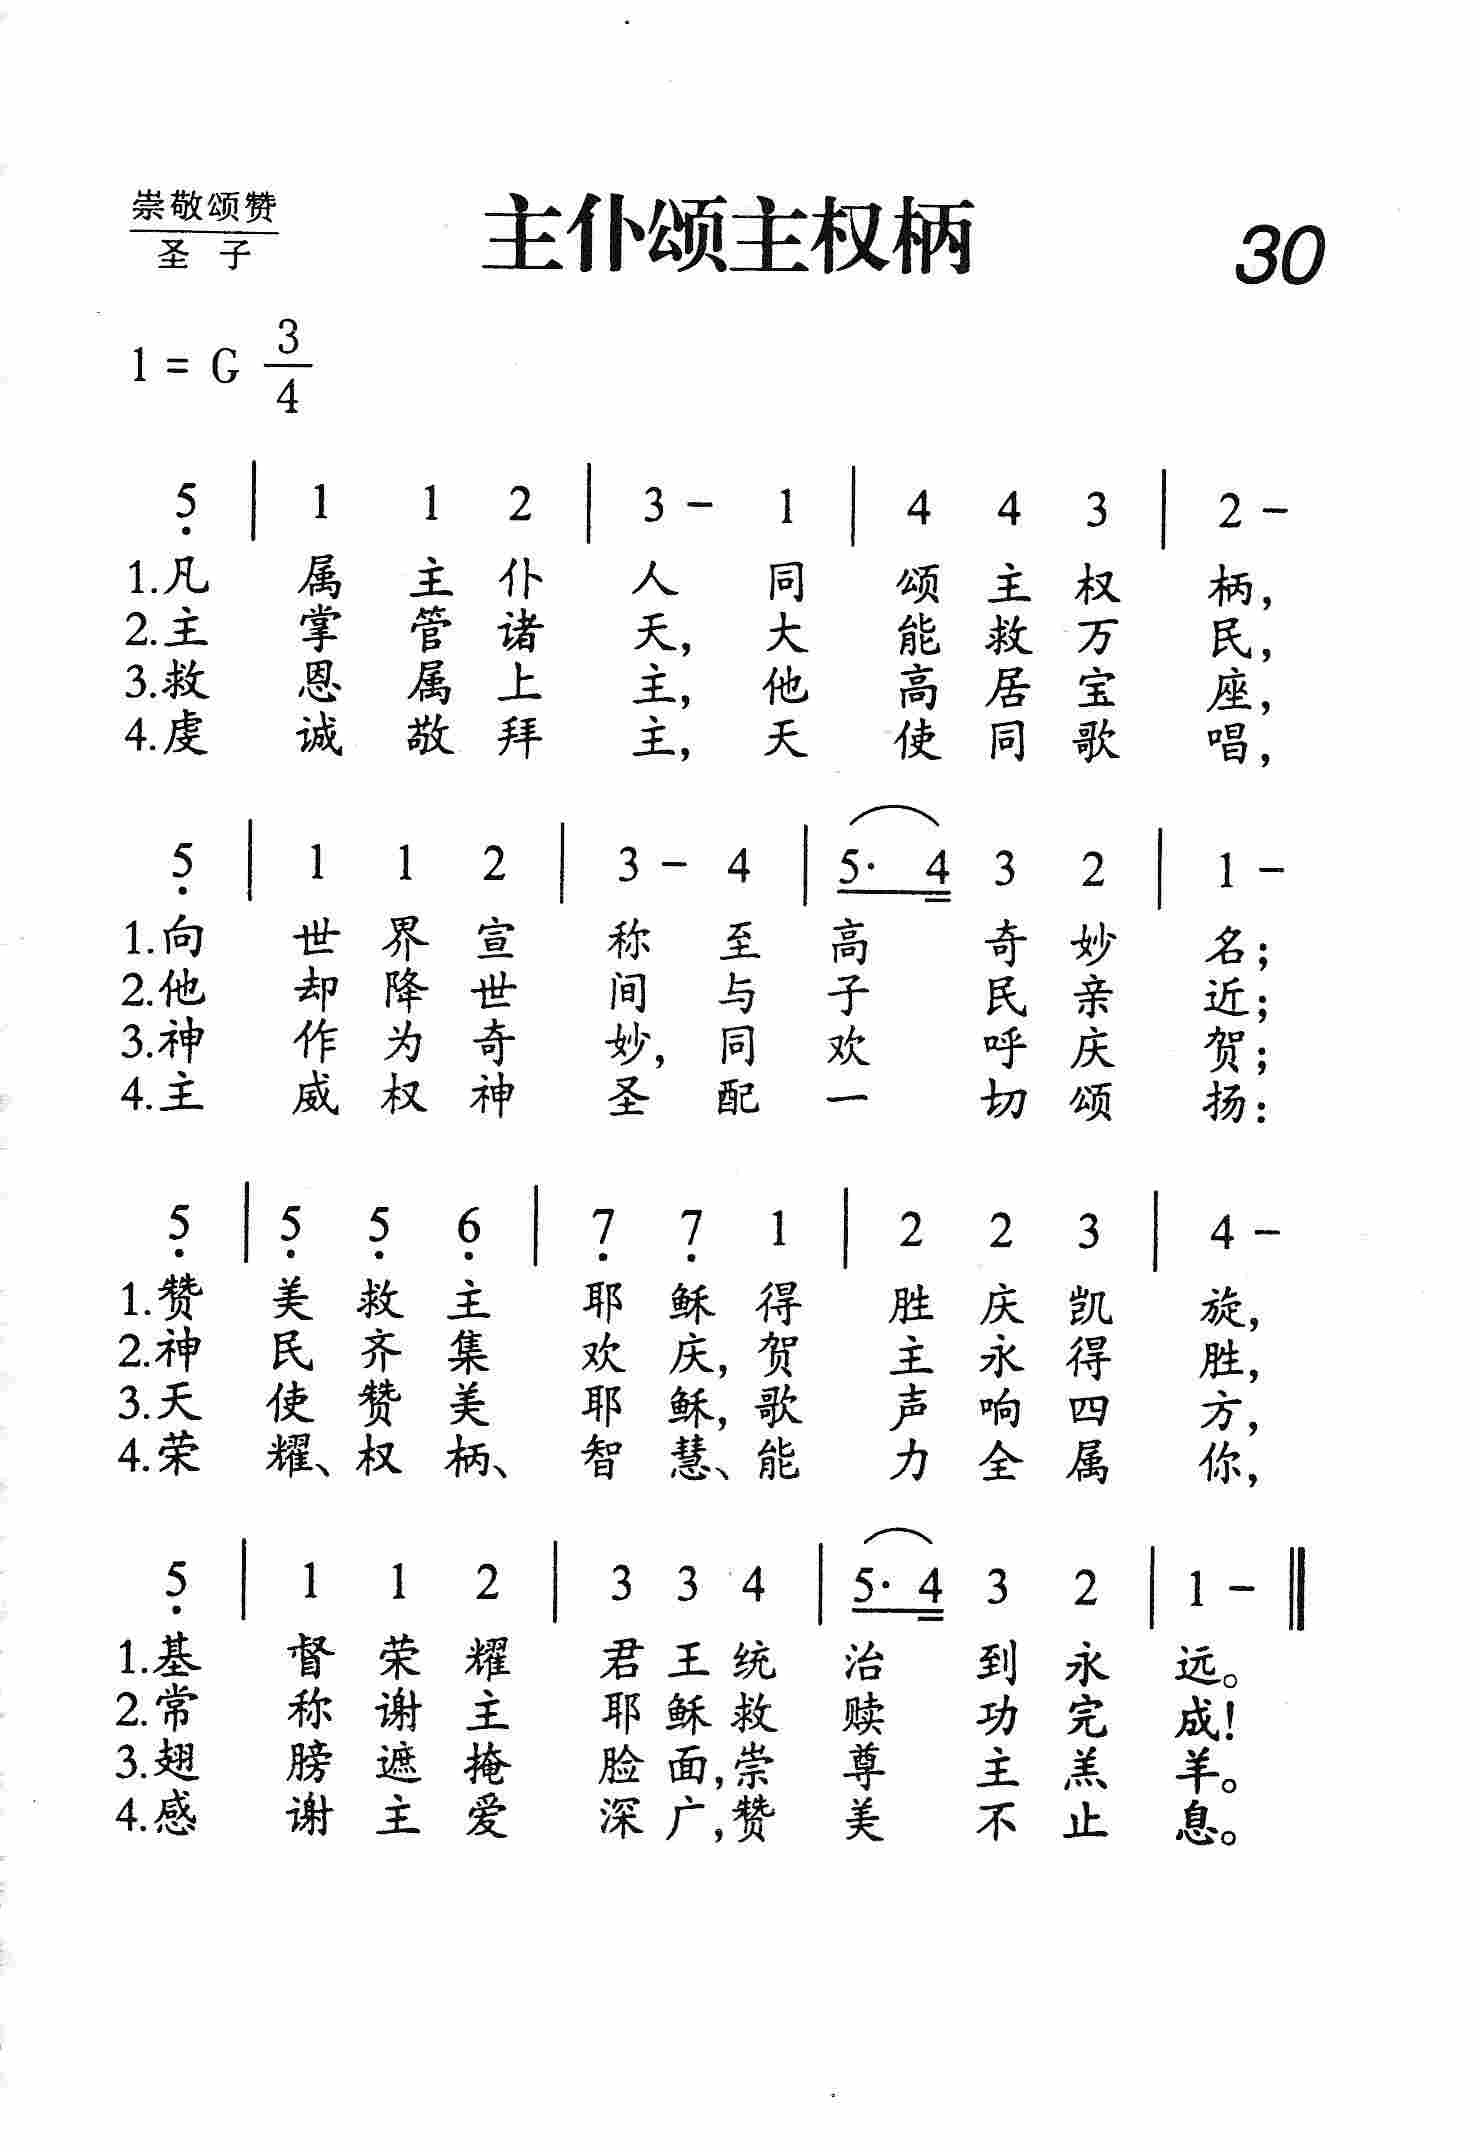 崇敬颂赞
圣 子
主仆颂主权柄
30
1 = G 3/4
5̣ | 1 1 2 | 3 - 1 | 4 4 3 | 2 -
1.凡 属 主 仆 人 同 颂 主 权 柄,
2.主 掌 管 诸 天, 大 能 救 万 民,
3.救 恩 属 上 主, 他 高 居 宝 座,
4.虔 诚 敬 拜 主, 天 使 同 歌 唱,
5̣ | 1 1 2 | 3 - 4 | 5· 4 3 2 | 1 -
1.向 世 界 宣 称 至 高 奇 妙 名;
2.他 却 降 世 间 与 子 民 亲 近;
3.神 作 为 奇 妙, 同 欢 呼 庆 贺;
4.主 威 权 神 圣 配 一 切 颂 扬:
5̣ | 5̣ 5̣ 6̣ | 7̣ 7̣ 1 | 2 2 3 | 4 -
1.赞 美 救 主 耶 稣 得 胜 庆 凯 旋,
2.神 民 齐 集 欢 庆, 贺 主 永 得 胜,
3.天 使 赞 美 耶 稣, 歌 声 响 四 方,
4.荣 耀、权 柄、智 慧、能 力 全 属 你,
5̣ | 1 1 2 | 3 3 4 | 5· 4 3 2 | 1 - ‖
1.基 督 荣 耀 君 王 统 治 到 永 远。
2.常 称 谢 主 耶 稣 救 赎 功 完 成!
3.翅 膀 遮 掩 脸 面, 崇 尊 主 羔 羊。
4.感 谢 主 爱 深 广, 赞 美 不 止 息。